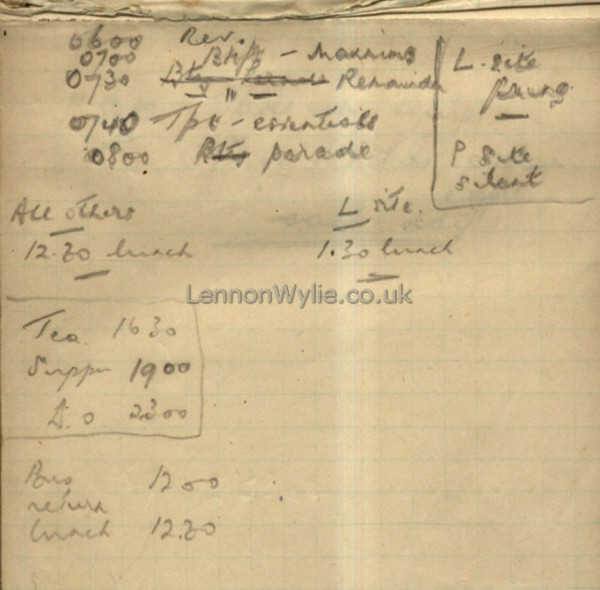 0600 Rev.
0700 Bkft - Maxnims
0730 Remainder
0740 Tpt - essentials
0800 Bty parade
L. site
firing
P site
silent
All others
12.30 lunch
L site.
1.30 lunch
LennonWylie.co.uk
Tea 1630
Supper 1900
L.O 2300
Bus 1200
return
lunch 12.30